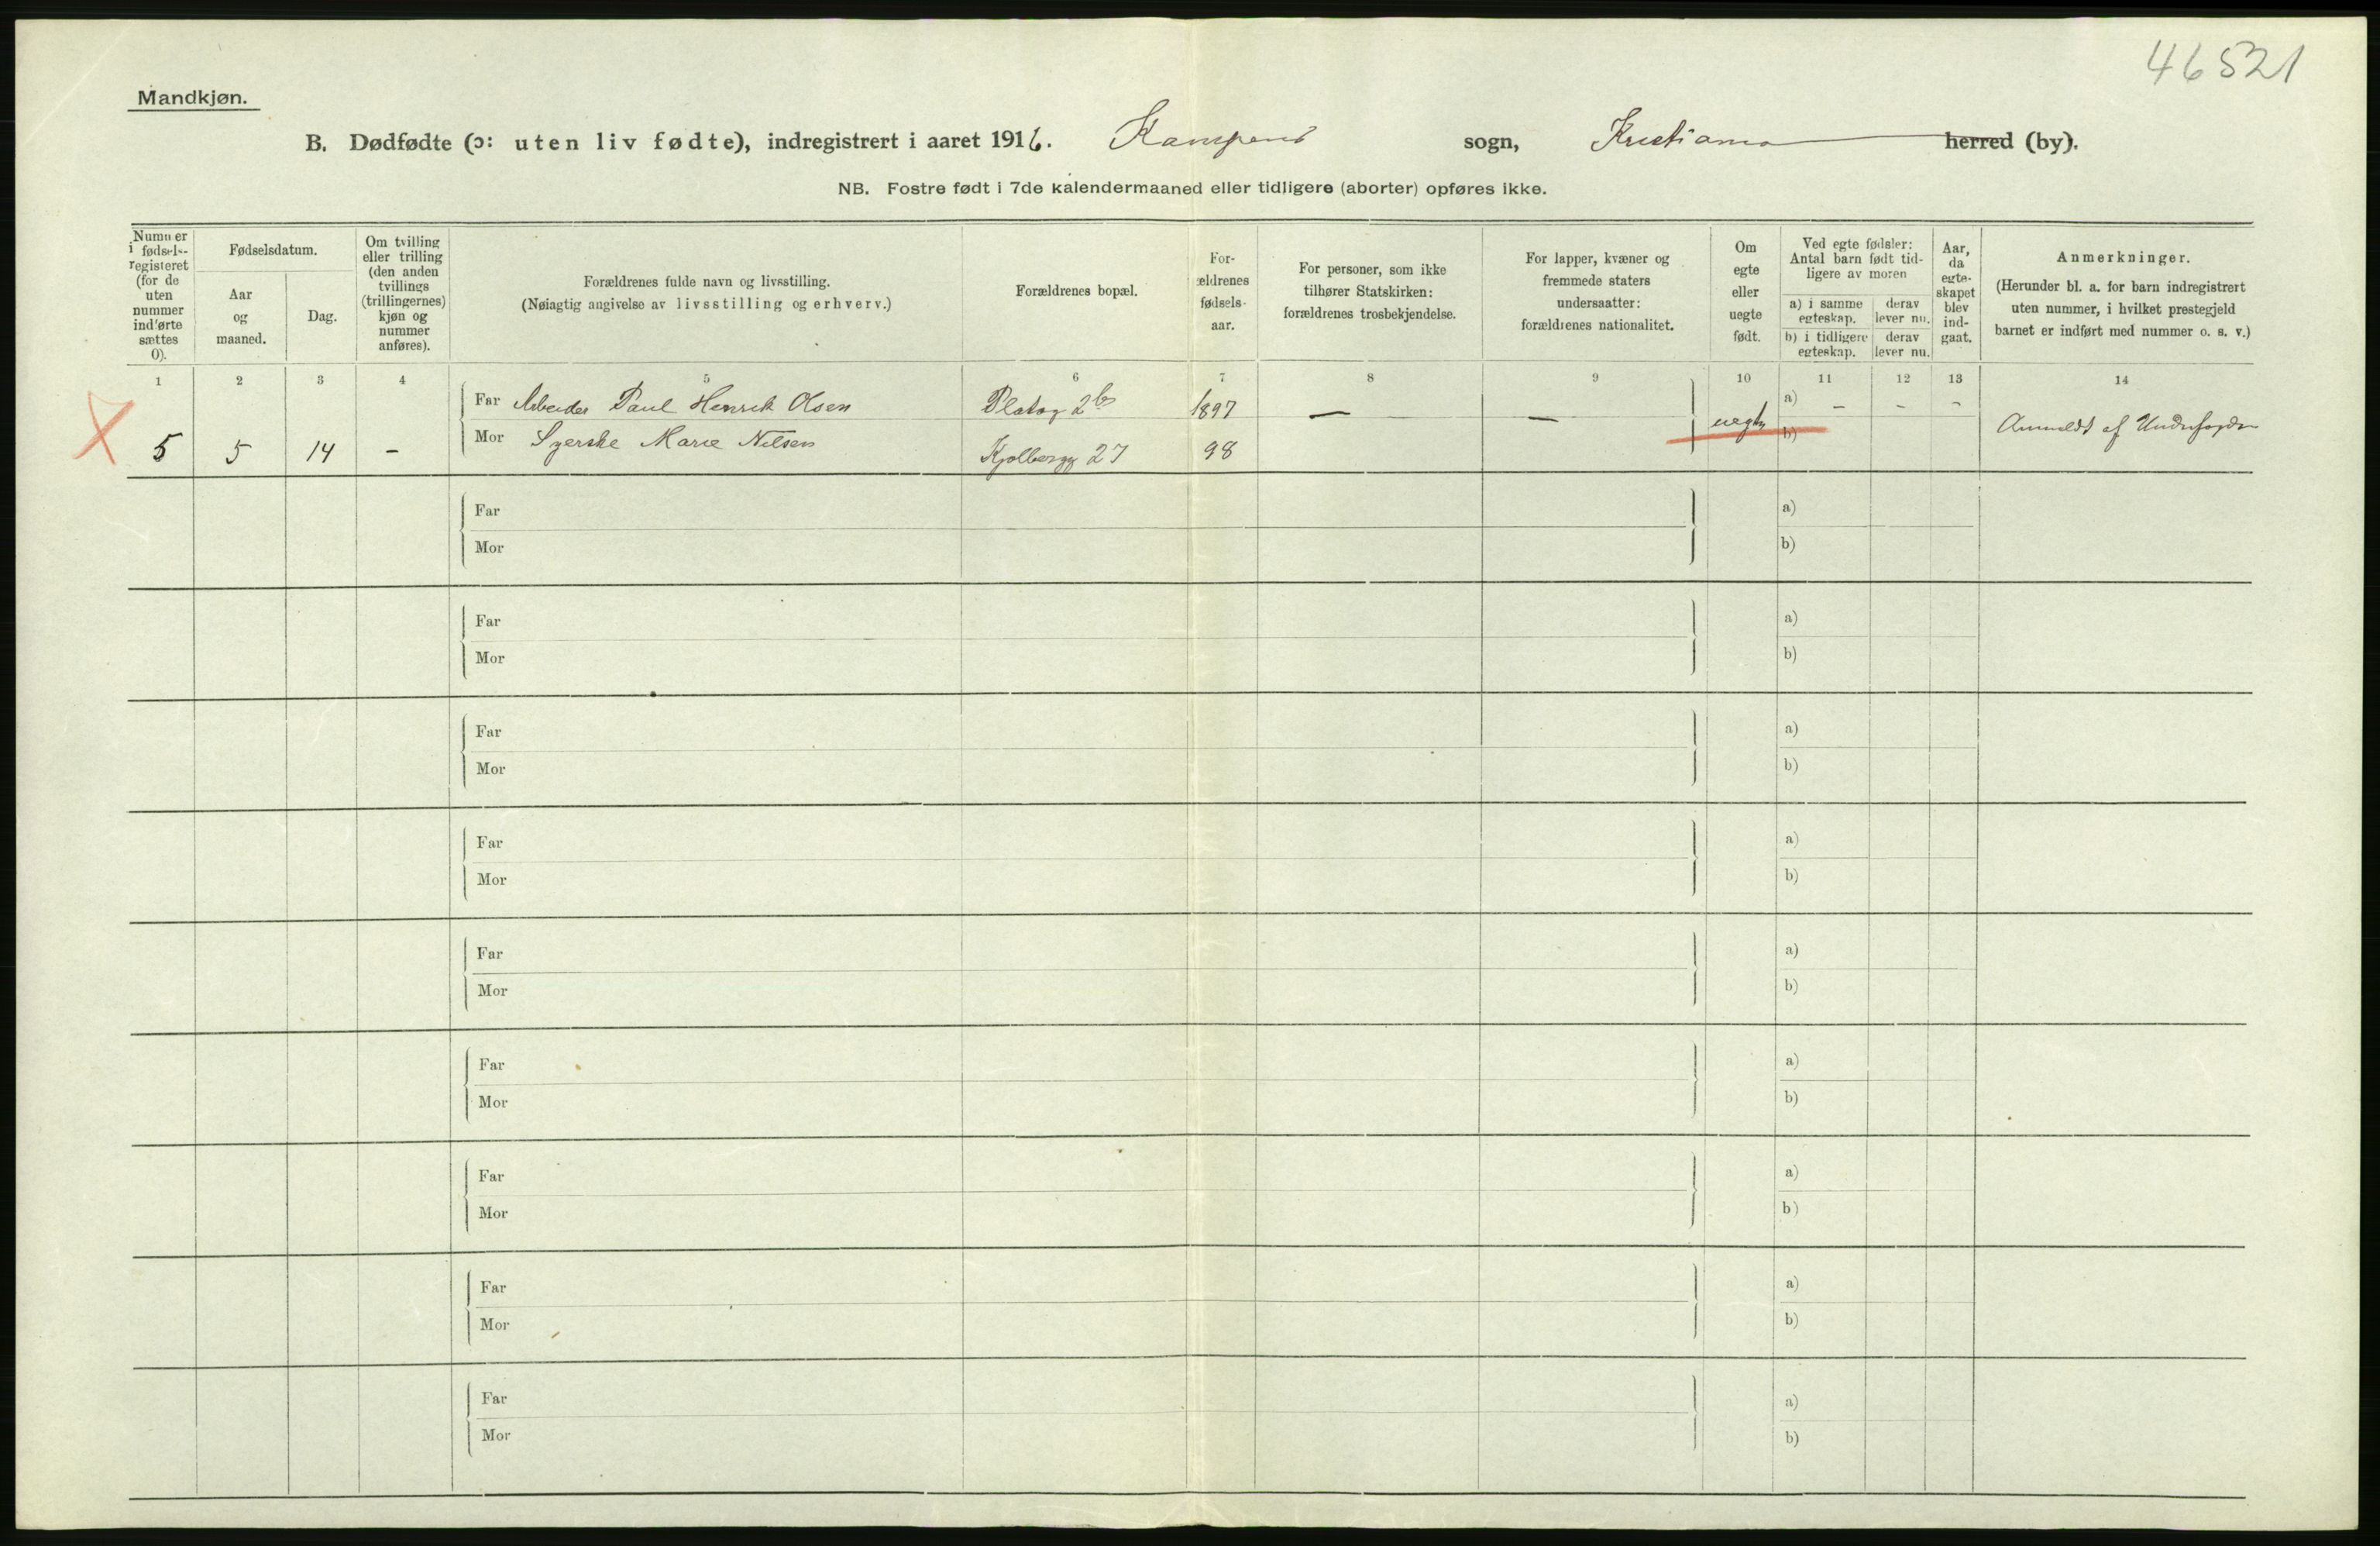 46521
Mandkjøn.
B. Dødfødte (ɔ: uten liv fødte), indregistrert i aaret 1916. Kampens sogn, Kristiania herred (by).
NB. Fostre født i 7de kalendermaaned eller tidligere (aborter) opføres ikke.
Nummer i fødsels-registeret (for de uten nummer indførte sættes 0).
Fødselsdatum.
Aar og maaned.
Dag.
Om tvilling eller trilling (den anden tvillings (trillingernes) kjøn og nummer anføres).
Forældrenes fulde navn og livsstilling.
(Nøiagtig angivelse av livsstilling og erhverv.)
Forældrenes bopæl.
For-ældrenes fødsels-aar.
For personer, som ikke tilhører Statskirken: forældrenes trosbekjendelse.
For lapper, kvæner og fremmede staters undersaatter: forældrenes nationalitet.
Om egte eller uegte født.
Ved egte fødsler: Antal barn født tid-ligere av moren
a) i samme egteskap.
derav lever nu.
b) i tidligere egteskap.
derav lever nu.
Aar, da egte-skapet blev ind-gaat.
Anmerkninger.
(Herunder bl. a. for barn indregistrert uten nummer, i hvilket prestegjeld barnet er indført med nummer o. s. v.)
1 2 3 4 5 6 7 8 9 10 11 12 13 14
Far Arbeider Paul Henrik Olsen Platog 2b 1897 — — uegte a) – – –
5 5 14 – Mor Syerske Marie Nilsen Kjølbergg 27 98 b) Anmeldt af
Far a)
Mor b)
Far a)
Mor b)
Far a)
Mor b)
Far a)
Mor b)
Far a)
Mor b)
Far a)
Mor b)
Far a)
Mor b)
Far a)
Mor b)
Far a)
Mor b)